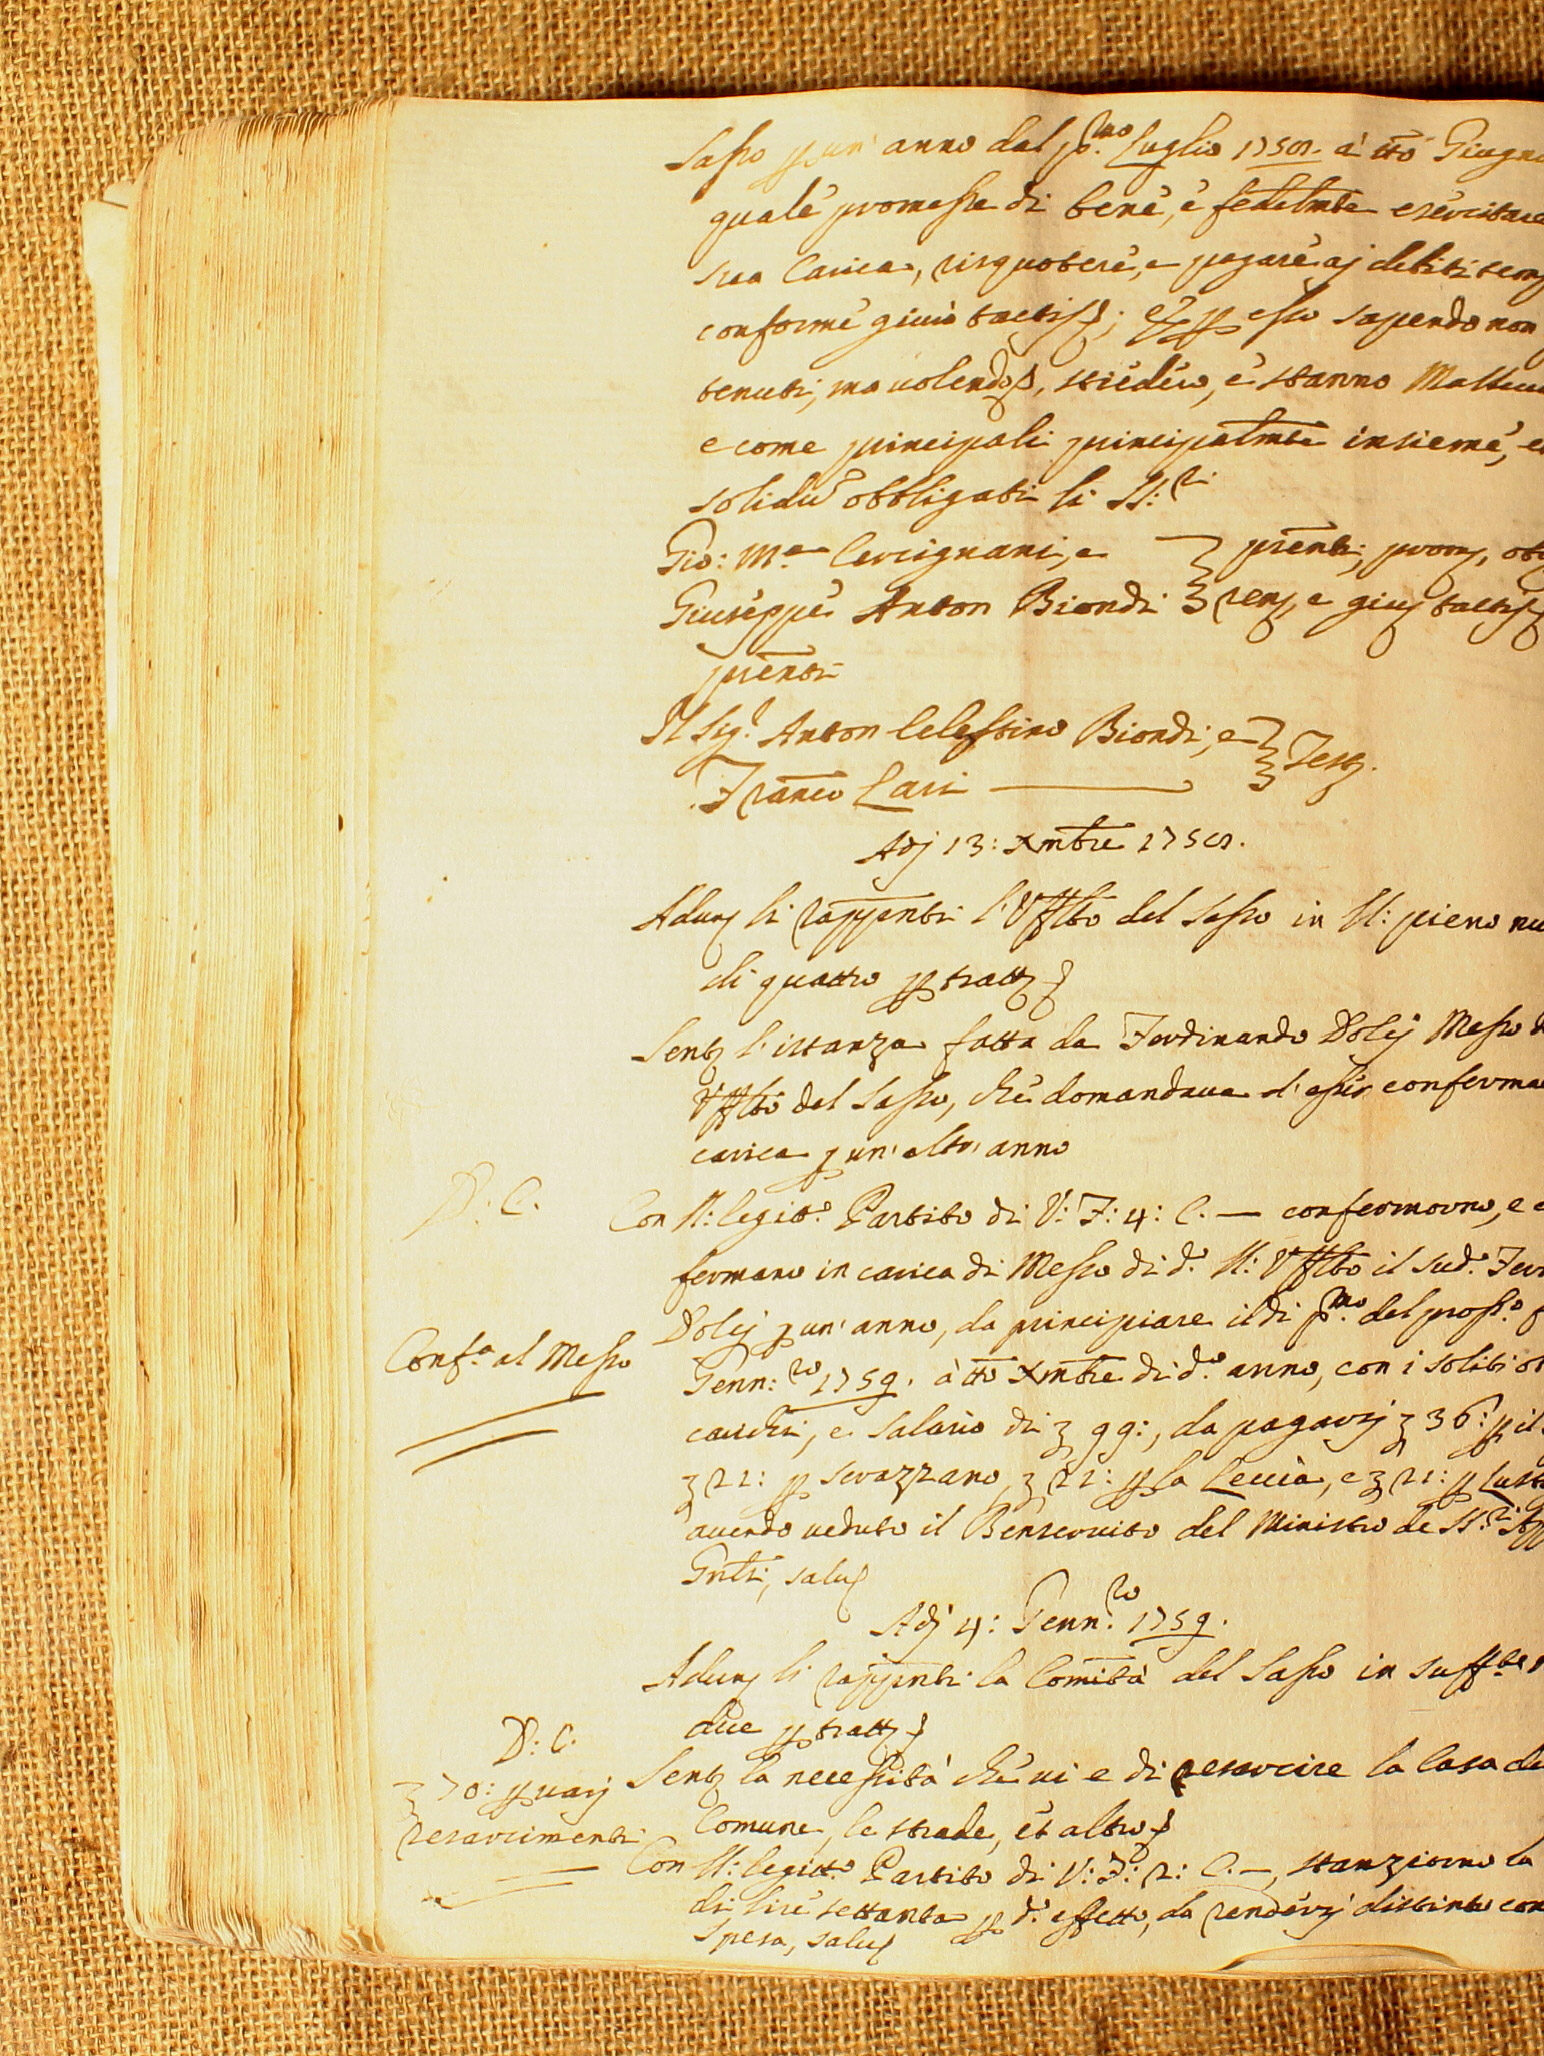 Sasso p un' anno dal p.mo Luglio 1758. à tto Giugno
quale promesse di bene, e fedelmte esercitare
sua Carica, risquotere, e pagare aj debiti temp
conforme giurò tactis; e p esso sapendo non
tenuti, ma volendo, stiedero, e stanno Mallev
e come principali principalmte insieme, e
solidu obbligati li SS:ri
Gio: Ma Cercignani, e
Giuseppe Anton Biondi } pienti, prom, obb
ren, e giur tactis
pienti
Il Sigr Anton Celestino Biondi, e
Franco Lari } Test.
Adj 13: Xmbre 1758.
Adun li rappenti l'Uffito del Sasso in SS: pieno nu
di quattro p tratt
Sent l'istanza fatta da Ferdinando Dolcj Messo d
Uffito del Sasso, che domandava d'esser conferma
carica p un' altr' anno
D: C.
Con SS: legit.o Partito di V: F: 4: C. — confermorno, e c
fermano in carica di Messo di d.o SS: Uffito il sud.o Fer
Dolcj p un' anno, da principiare il di p.mo del pross.o
Conf.a al Messo
Genn:ro 1759. à tto Xmbre di d.o anno, con i soliti
carichi, e salario di ʒ 99:, da pagarsj ʒ 36: p il
ʒ 21: p Serazzano, ʒ 21: p la Leccia, e ʒ 21: p Lust
avendo veduto il Benservito del Ministro de SS:ri
Gnli, salus
Adj 4: Genn.ro 1759.
Adun li rappnti la Comità del Sasso in suff.te
due p tratt
D: C.
ʒ 70: p varj
resarcimenti
Sent la necessità che vi e di resarcire la Casa de
Comune, le strade, et altro
Con SS: legitt.o Partito di V: F: 2: C. —, stanziorno la
di lire settanta p d.o effetto, da rendersj distinto con
spesa, salus